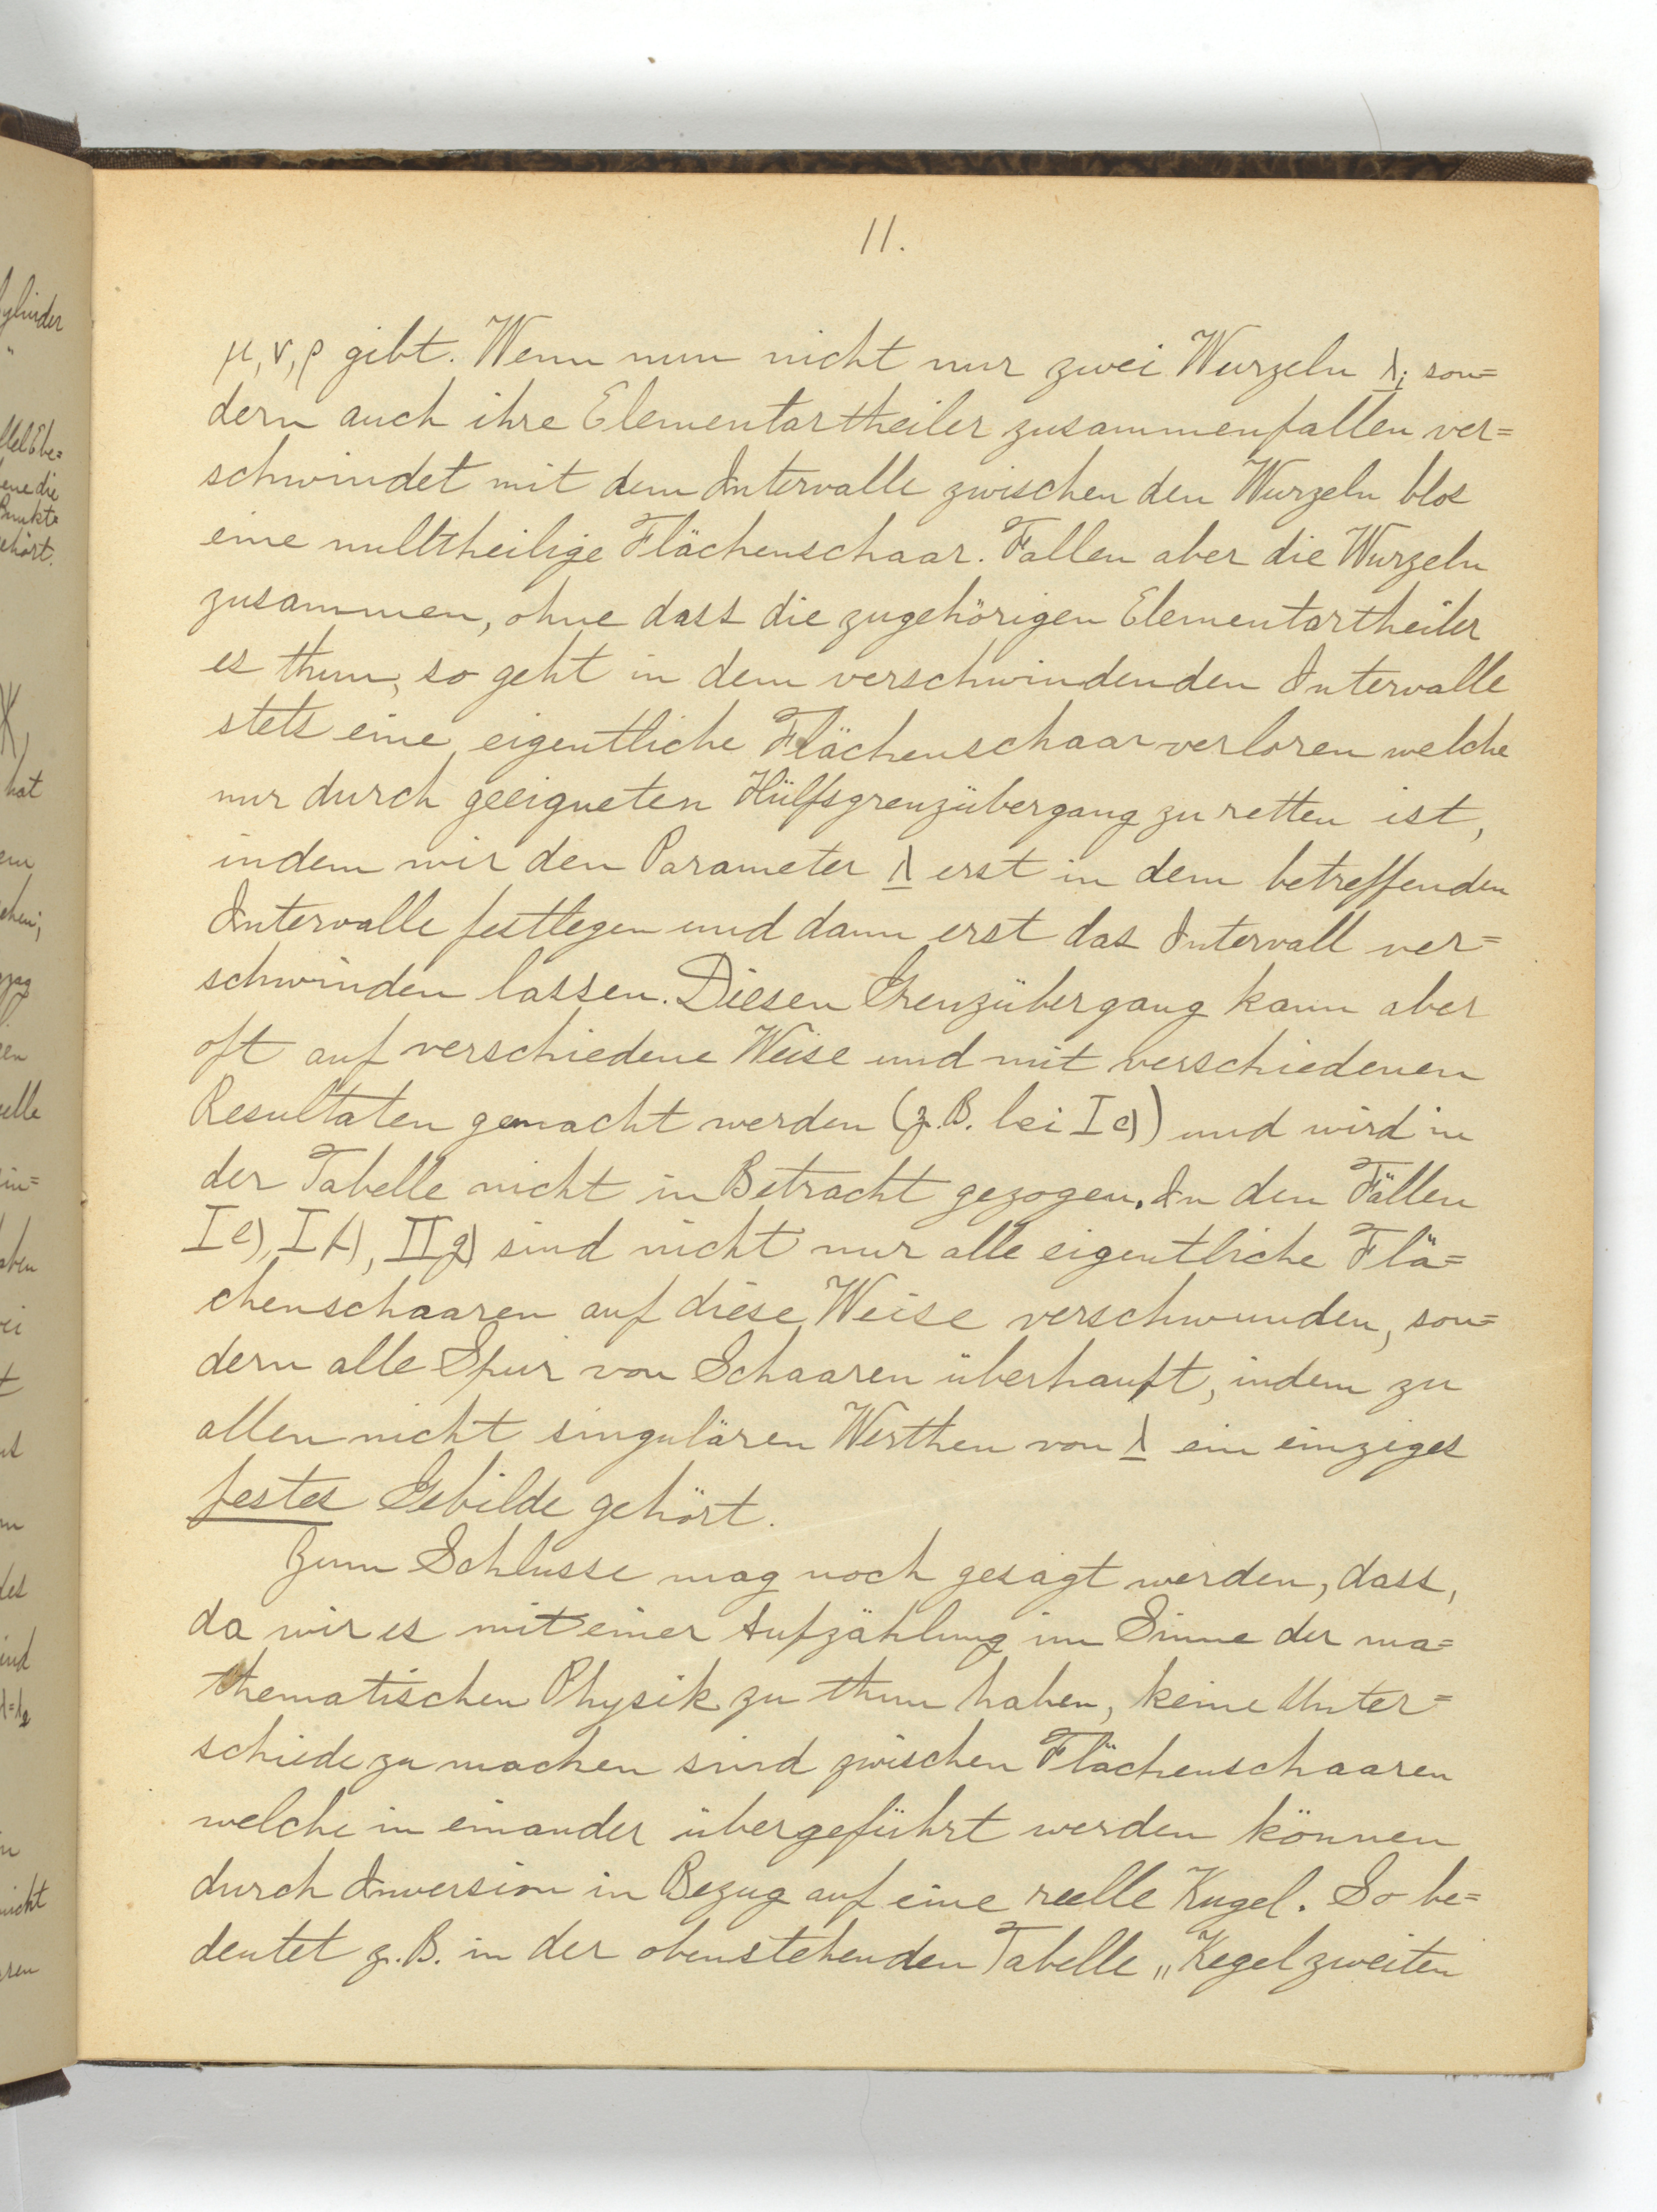 11.
μ, ν, ρ gibt. Wenn nun nicht nur zwei Wurzeln λ_i son=
dern auch ihre Elementartheiler zusammenfallen ver=
schwindet mit dem Intervalle zwischen den Wurzeln blos
eine nulltheilige Flächenschaar. Fallen aber die Wurzeln
zusammen, ohne dass die zugehörigen Elementartheiler
es thun, so geht in dem verschwindenden Intervalle
stets eine eigentliche Flächenschaar verloren welche
nur durch geeigneten Hülfsgrenzübergang zu retten ist,
indem wir den Parameter λ erst in dem betreffenden
Intervalle festlegen und dann erst das Intervall ver=
schwinden lassen. Diesen Grenzübergang kann aber
oft auf verschiedene Weise und mit verschiedenen
Resultaten gemacht werden (z. B. bei I e)) und wird in
der Tabelle nicht in Betracht gezogen. In den Fällen
I e), I f), II g) sind nicht nur alle eigentliche Flä=
chenschaaren auf diese Weise verschwunden, son=
dern alle Spur von Schaaren überhauft, indem zu
allen nicht singulären Werthen von λ ein einziges
festes Gebilde gehört.
Zum Schlusse mag noch gesagt werden, dass,
da wir es mit einer Aufzählung im Sinne der ma=
thematischen Physik zu thun haben, keine Unter=
schiede zu machen sind zwischen Flächenschaaren
welche in einander übergeführt werden können
durch Inversion in Bezug auf eine reelle Kugel. So be=
deutet z. B. in der obenstehenden Tabelle „Kegel zweiten